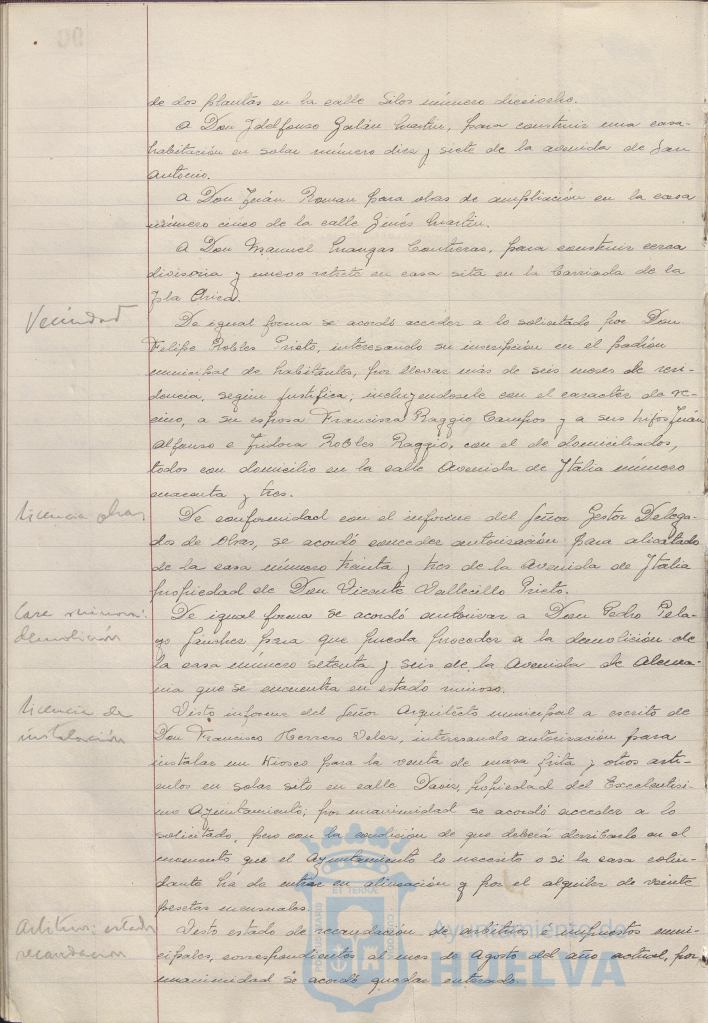 de dos plantas en la calle Silos número dieciocho.
A Don Ildelfonso Galán Martin, para construir una casa-
habitación en solar número diez y siete de la avenida de San
Antonio.
A Don Juán Roman para obras de ampliación en la casa
número cinco de la calle Ginés Martin.
A Don Manuel Mangas Contreras, para construir cerca
divisoria y nuevo retrete en casa sita en la Barriada de la
Isla Chica.
Vecindad
De igual forma se acordó acceder a lo solicitado por Don
Felipe Robles Prieto, interesando su inscripción en el padrón
municipal de habitantes, por llevar más de seis meses de resi-
dencia, segun justifica; incluyendosele con el caracter de ve-
cino, a su esposa Francisca Raggio Campos y a sus hijos Juán
Alfonso e Isidora Robles Raggio, con el de domiciliados,
todos con domicilio en la calle Avenida de Itália número
cuarenta y tres.
Licencia obras
De conformidad con el informe del Señor Gestor Delega-
dos de Obras, se acordó conceder autorización para alicatado
de la casa número treinta y tres de la Avenida de Italia
propiedad de Don Vicente Vallecillo Prieto.
Casa ruinosa:
demolición
De igual forma se acordó autorizar a Don Pedro Pela-
yo Sanchez para que pueda proceder a la demolición de
la casa número setenta y seis de la Avenida de Alema-
nia que se encuentra en estado ruinoso.
Licencia de
instalación
Visto informe del Señor Arquitécto municipal a escrito de
Don Francisco Herrero Velez, interesando autorización para
instalar un Kiosco para la venta de masa frita y otros arti-
culos en solar sito en calle propiedad del Excelentisi-
mo Ayuntamiento; por unanimidad se acordó acceder a lo
solicitado, pero con la condición de que deberá derribarlo en el
momento que el Ayuntamiento lo necesite o si la casa colin-
dante ha de entrar en alineación y por el alquiler de veinte
pesetas mensuales.
Arbitrios: estado
recaudacion
Visto estado de recaudación de arbitrios é impuestos muni-
cipales, correspondientes al mes de Agosto del año actual, por
unanimidad se acordó quedar enterado.
Ayuntamiento de
HUELVA